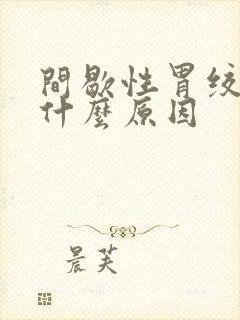 間歇性胃絞
什麼原因
晨芙